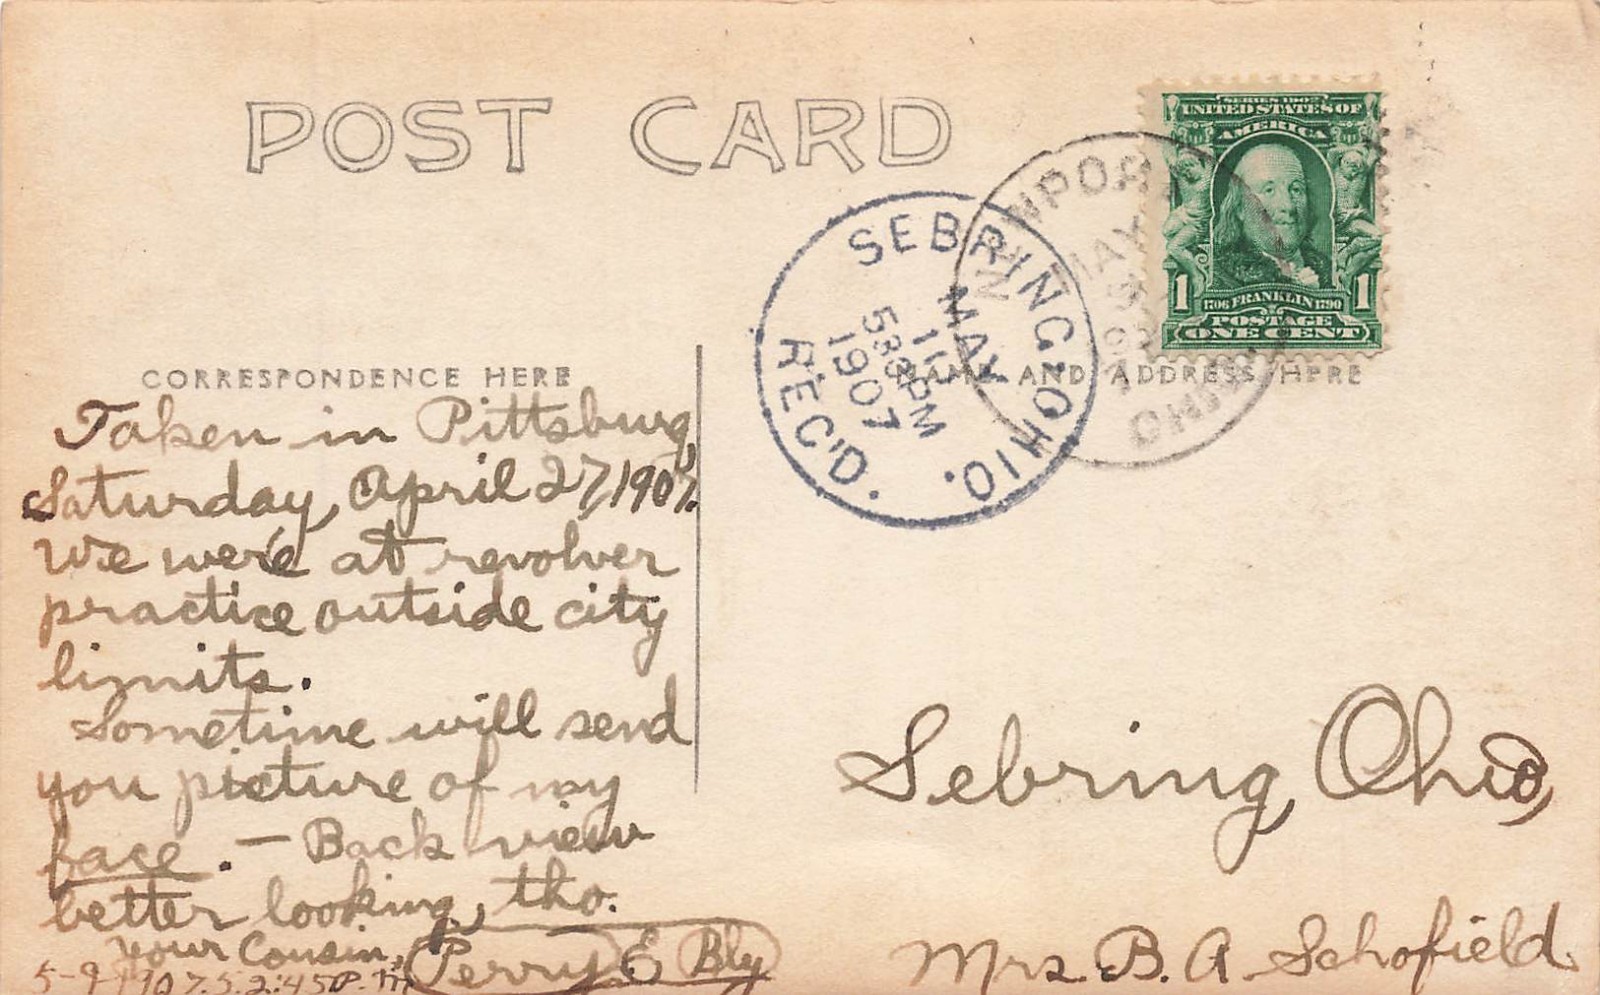 POST CARD
SERIES 1902
UNITED STATES OF
AMERICA
1 1706 FRANKLIN 1790 1
POSTAGE
ONE CENT
MAY
9
OHIO
SEBRING, OHIO.
MAY
10
530PM
1907
REC'D.
CORRESPONDENCE HERE
NAME AND ADDRESS HERE
Taken in Pittsburg,
Saturday, April 27, 1907.
We were at revolver
practice outside city
limits.
Sometime will send
you picture of my
face. — Back view
better looking, tho.
your Cousin,
Perry E Bly
5-9-1907. 2:45 P.M
Sebring, Ohio,
Mrs. B. A Schofield